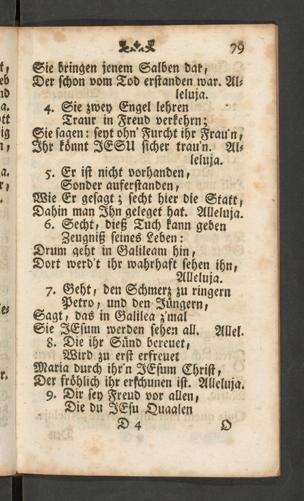 79
Sie bringen jenem Salben dar,
Der schon vom Tod erstanden war. Al-
leluja.
4. Sie zwey Engel lehren
Traur in Freud verkehrn;
Sie sagen: seyt ohn' Furcht ihr Frau'n,
Ihr könnt JESU sicher trau'n. Al-
leluja.
5. Er ist nicht vorhanden,
Sonder auferstanden,
Wie Er gesagt; secht hier die Statt,
Dahin man Ihn geleget hat. Alleluja.
6. Secht, dieß Tuch kann geben
Zeugniß seines Leben:
Drum geht in Galileam hin,
Dort werd't ihr wahrhaft sehen ihn,
Alleluja.
7. Geht, den Schmerz zu ringern
Petro, und den Jüngern,
Sagt, das in Galilea z'mal
Sie JEsum werden sehen all. Allel.
8. Die ihr Sünd bereuet,
Wird zu erst erfreuet
Maria durch ihr'n JEsum Christ,
Der fröhlich ihr erschunen ist. Alleluja.
9. Dir sey Freud vor allen,
Die du JEsu Quaalen
D 4
O